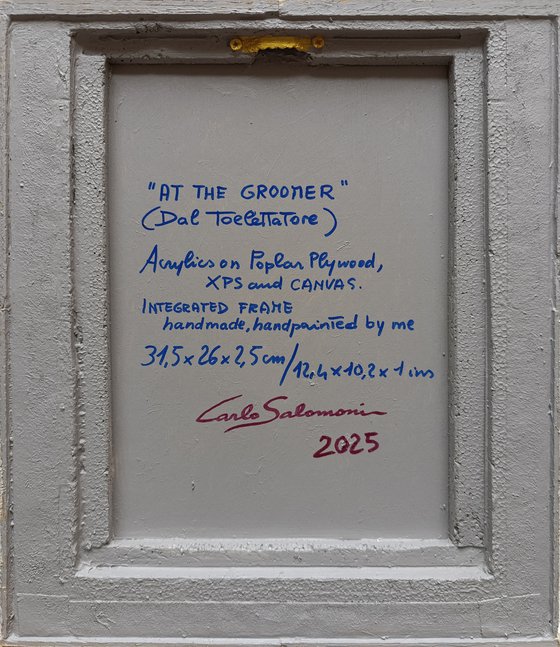 "AT THE GROOMER"
(Dal Toelettatore)
Acrylics on Poplar Plywood,
XPS and CANVAS.
INTEGRATED FRAME
handmade, handpainted by me
31,5 x 26 x 2,5 cm / 12,4 x 10,2 x 1 ins
Carlo Salomoni
2025